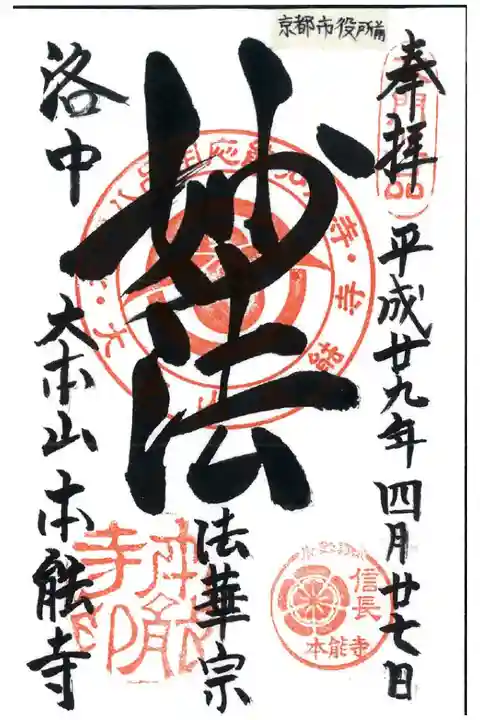 京都市役所前
奉拝
平成廿九年四月廿七日
妙法
法華宗
洛中
大本山本能寺
信長
本能寺
本能
寺印